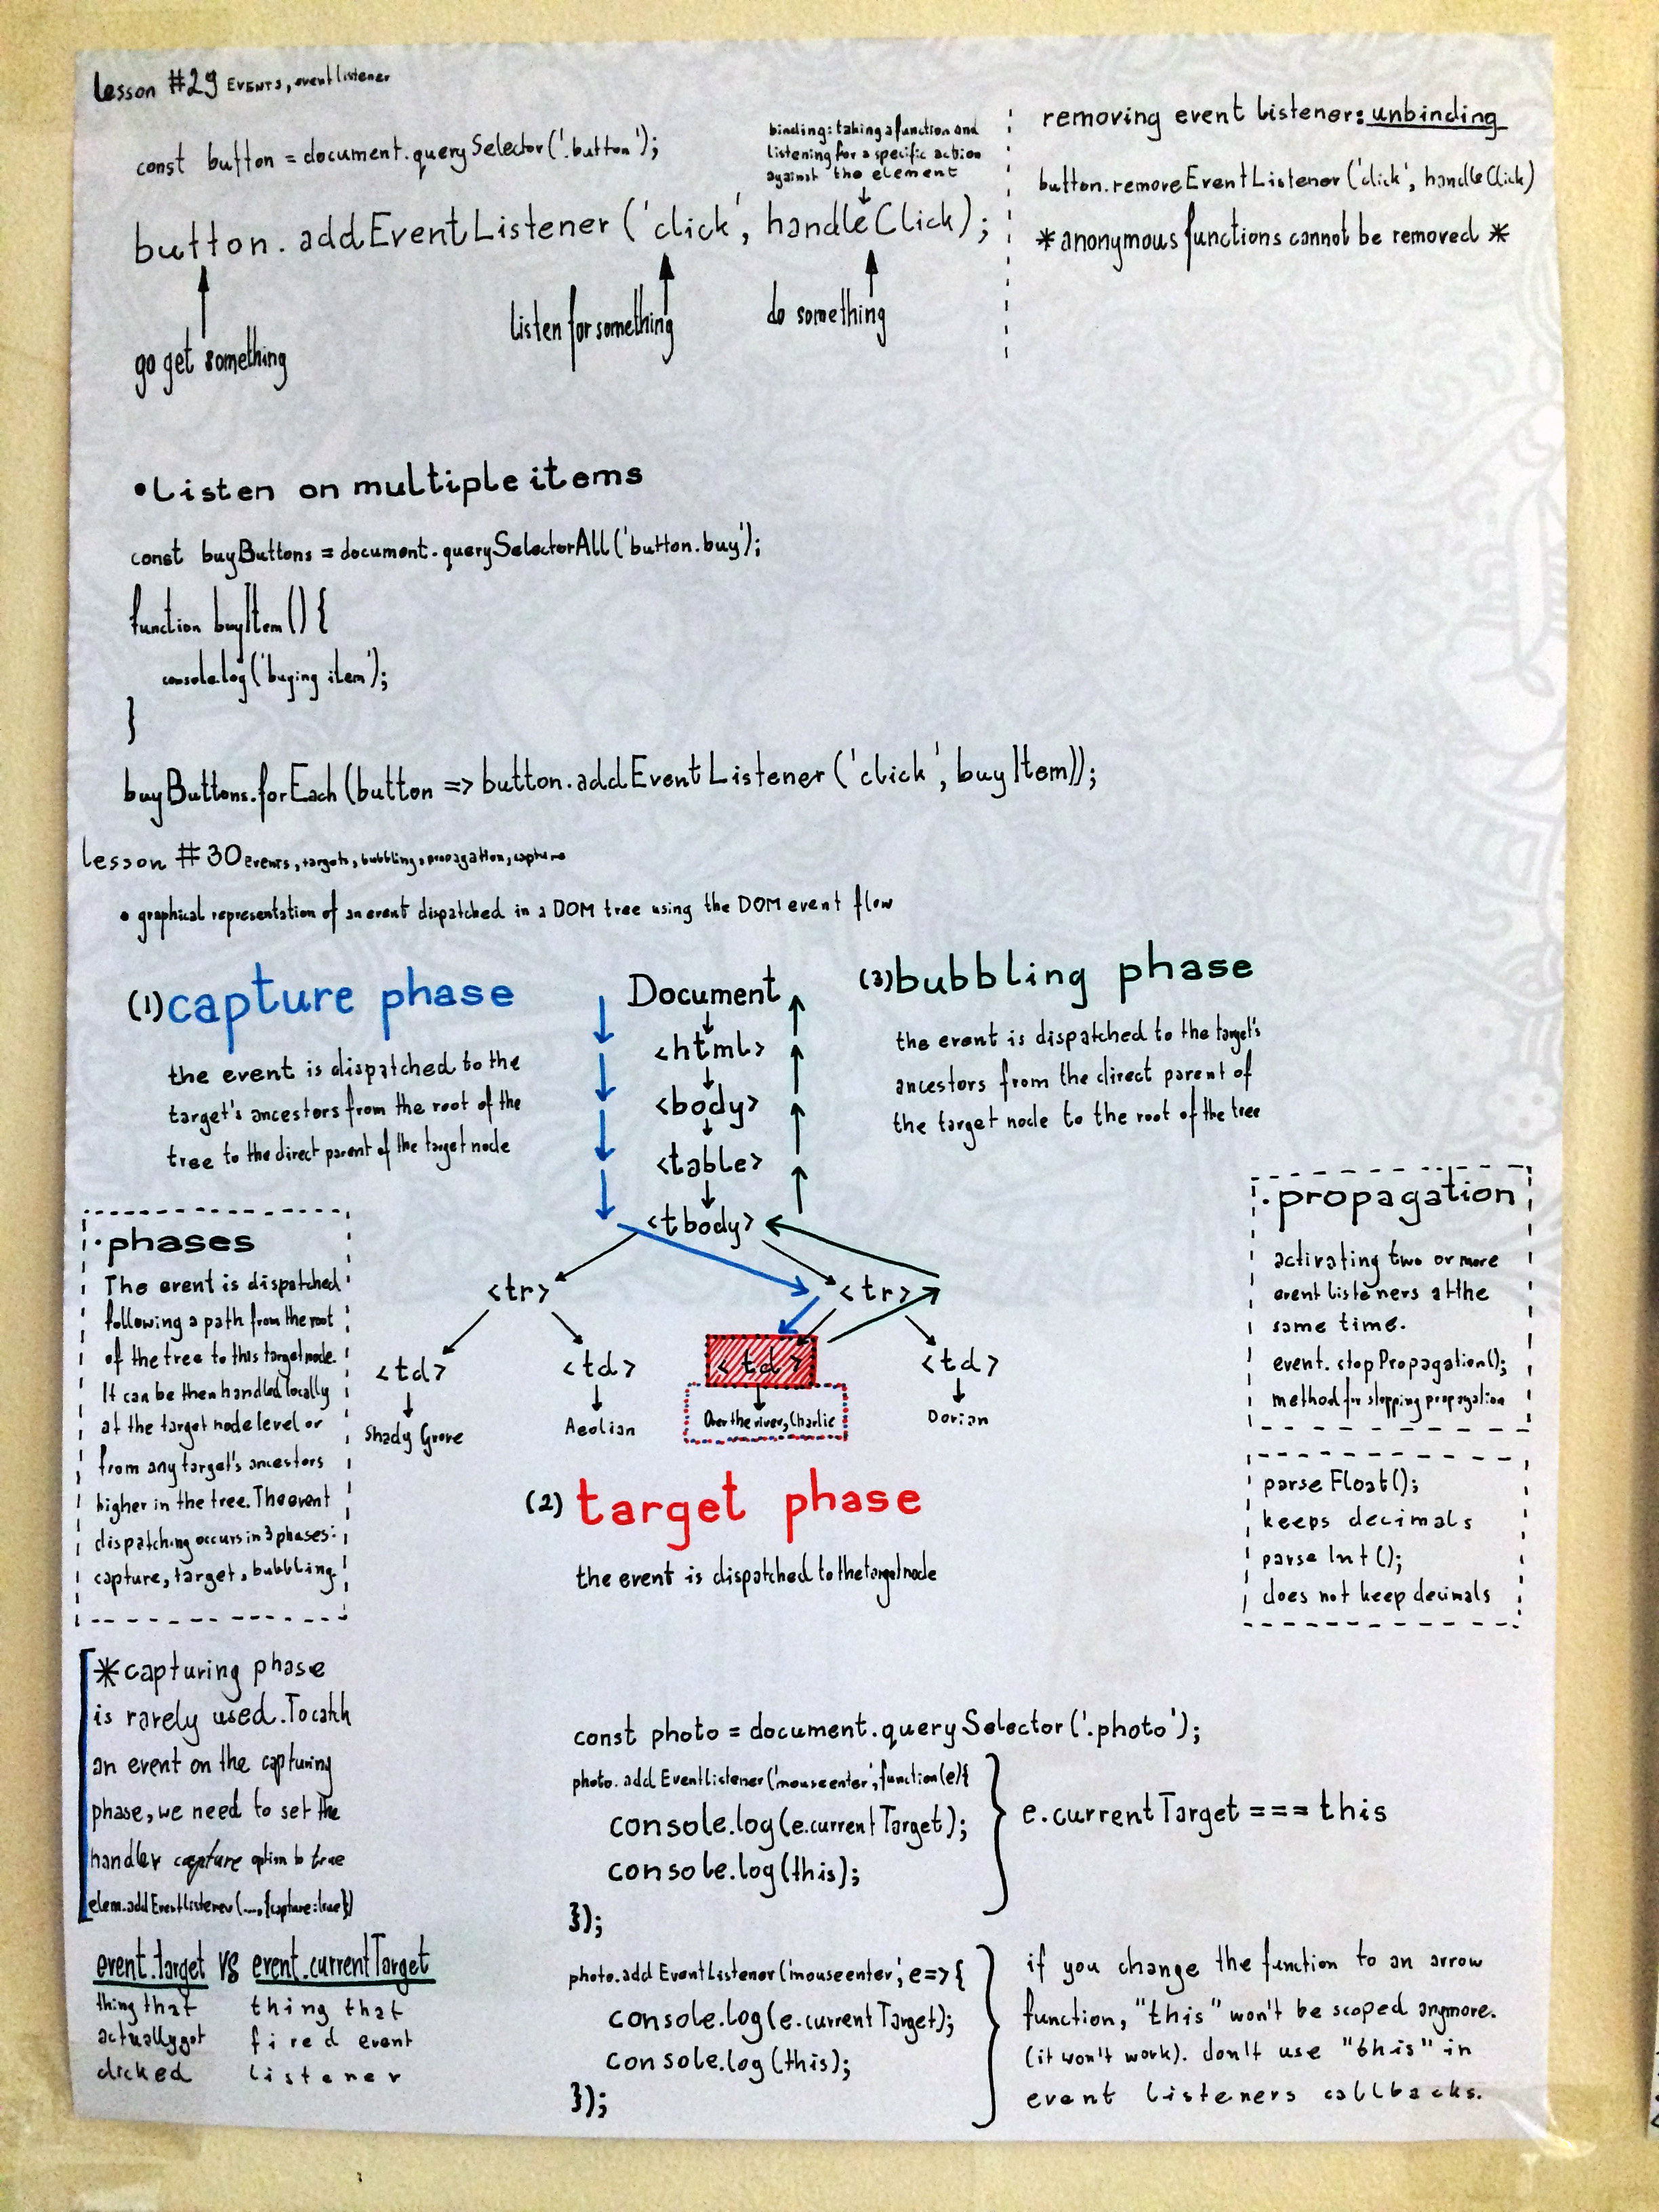 lesson #29 EVENTS, event listener
const button = document.querySelector('.button');
binding: taking a function and
listening for a specific action
against the element
button.addEventListener('click', handleClick);
go get something
listen for something
do something
removing event listener: unbinding
button.removeEventListener('click', handleClick)
*anonymous functions cannot be removed*
•Listen on multiple items
const buyButtons = document.querySelectorAll('button.buy');
function buyItem() {
console.log('buying item');
}
buyButtons.forEach(button => button.addEventListener('click', buyItem));
lesson #30 events, targets, bubbling, propagation, capture
• graphical representation of an event dispatched in a DOM tree using the DOM event flow
(1) capture phase
the event is dispatched to the
target's ancestors from the root of the
tree to the direct parent of the target node
Document
<html>
<body>
<table>
<tbody>
<tr> <tr>
<td> <td> <td> <td>
Shady Grove Aeolian Over the river, Charlie Dorian
(3) bubbling phase
the event is dispatched to the target's
ancestors from the direct parent of
the target node to the root of the tree
(2) target phase
the event is dispatched to the target node
•phases
The event is dispatched
following a path from the root
of the tree to this target node.
It can be then handled locally
at the target node level or
from any target's ancestors
higher in the tree. The event
dispatching occurs in 3 phases:
capture, target, bubbling.
•propagation
activating two or more
event listeners at the
same time.
event.stopPropagation();
method for stopping propagation
parseFloat();
keeps decimals
parseInt();
does not keep decimals
*capturing phase
is rarely used. To catch
an event on the capturing
phase, we need to set the
handler capture option to true
elem.addEventListener(..., {capture:true})
event.target VS event.currentTarget
thing that thing that
actually got fired event
clicked listener
const photo = document.querySelector('.photo');
photo.addEventListener('mouseenter', function(e){
console.log(e.currentTarget);
console.log(this);
});
e.currentTarget === this
photo.addEventListener('mouseenter', e=> {
console.log(e.currentTarget);
console.log(this);
});
if you change the function to an arrow
function, "this" won't be scoped anymore.
(it won't work). don't use "this" in
event listeners callbacks.